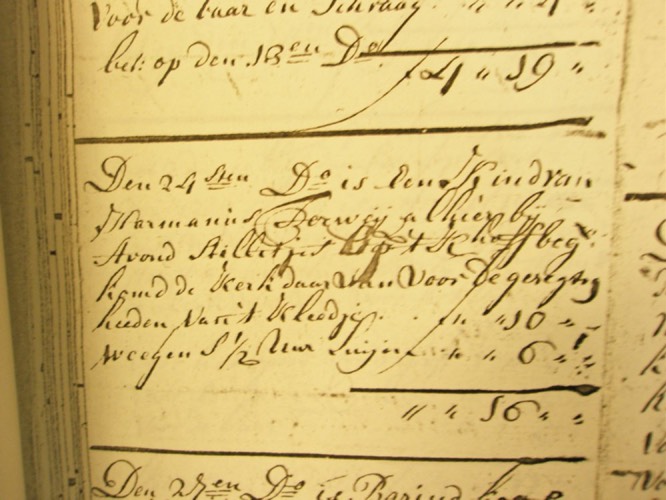 voor de baar en Schraag. " " 4 "
bet: op den 18en Do
4 " 19 "
Den 24sten Do is Een Kind van
Harmanus Derweij alhier bij
Avond Stilletjes op 't Khoff beg:
komd de Kerk daar van voor de geregtig
heeden van 't Kleedje. . " " 10 " "
weegen S 1/2 Uur Luijen " " 6 " "
" " 16 " "
Den 27en Do is